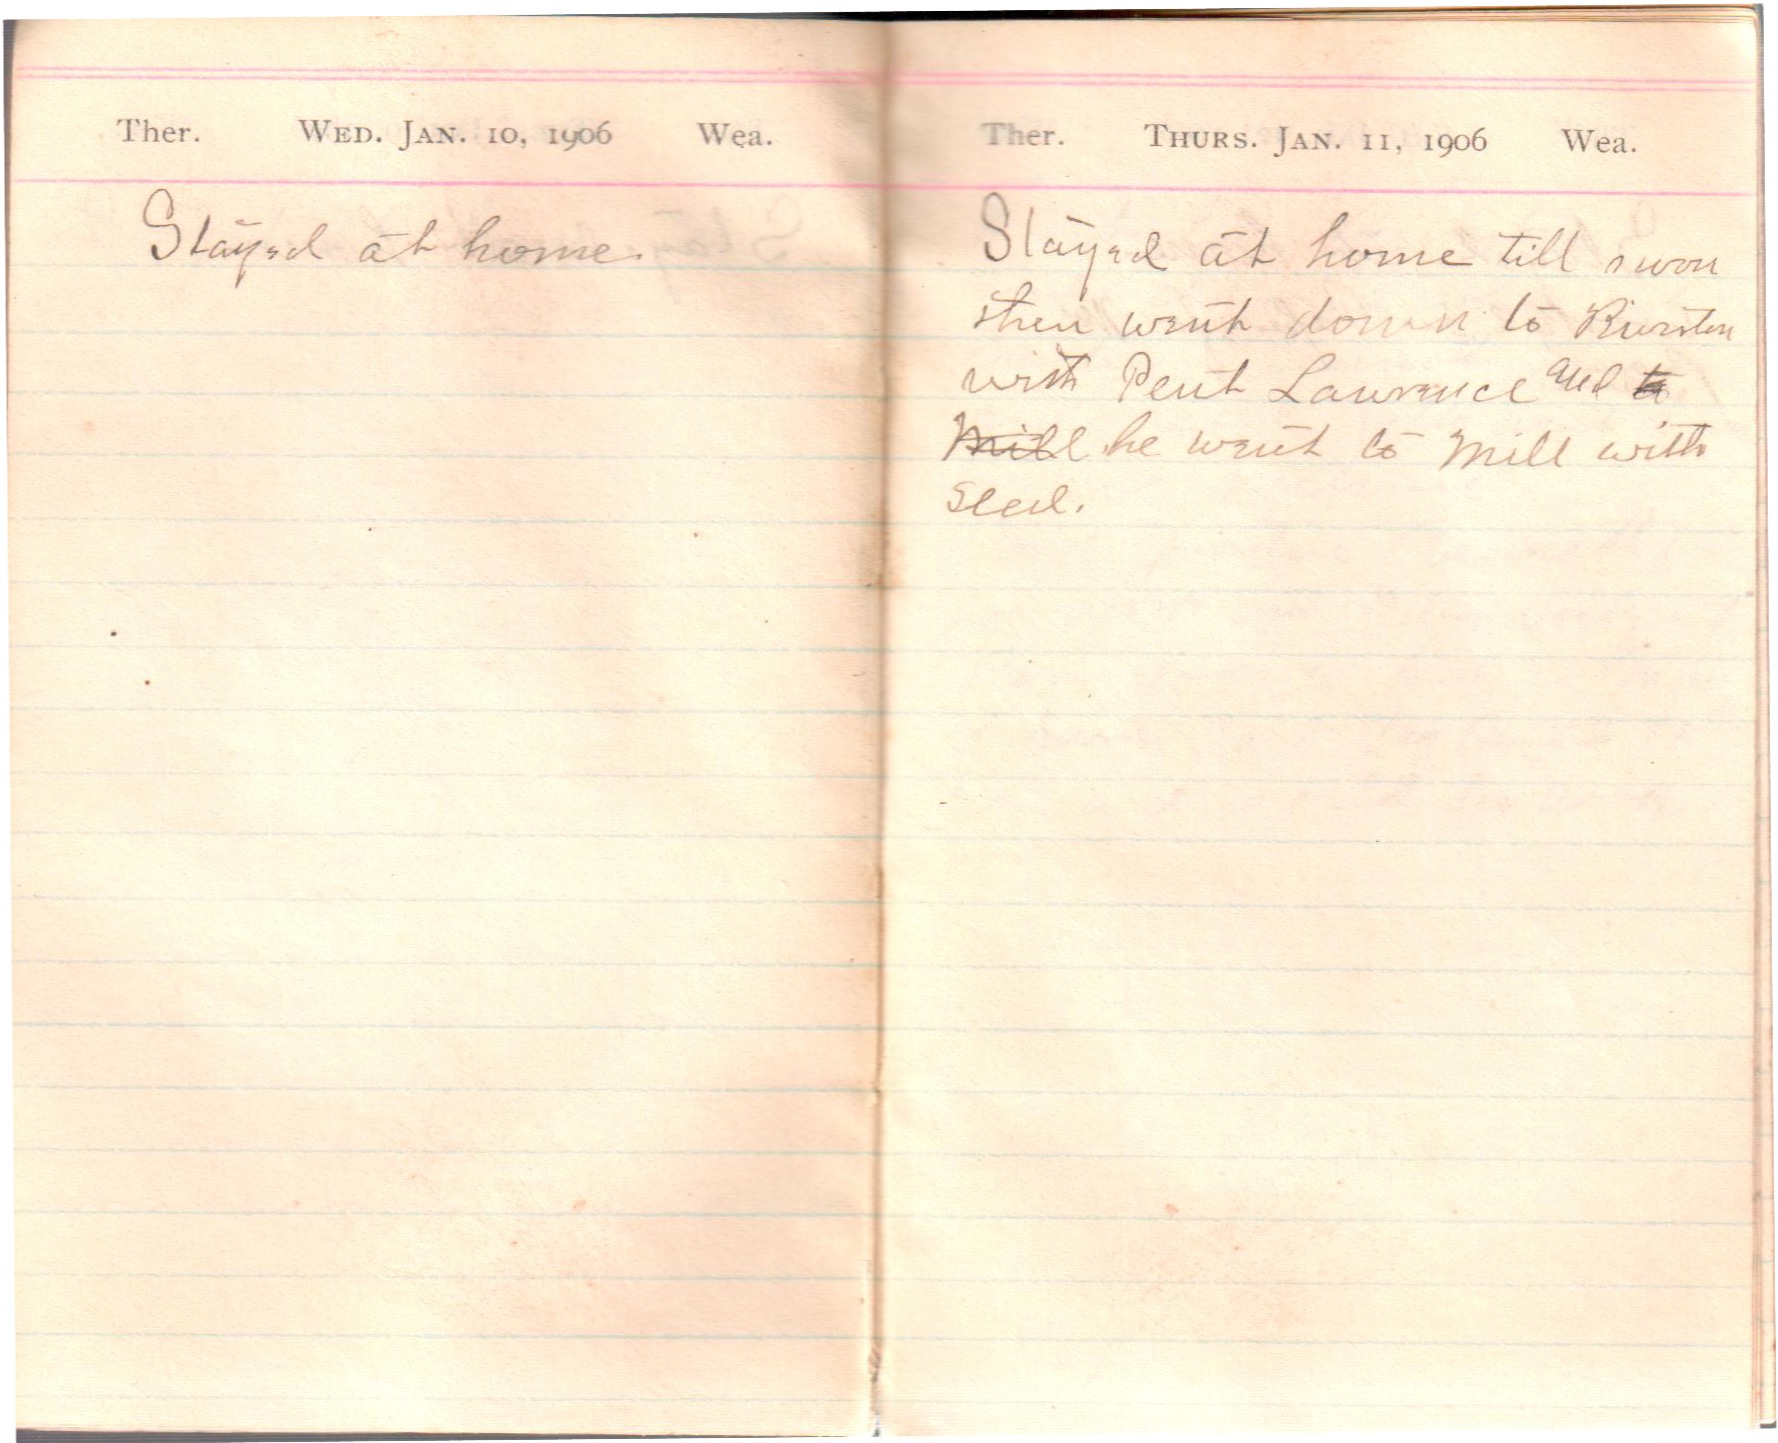 Ther. WED. JAN. 10, 1906 Wea.
Stayed at home.
Ther. THURS. JAN. 11, 1906 Wea.
Stayed at home till noon
then went down to
with Pent Lawrence and to
Mill he went to Mill with
seed.